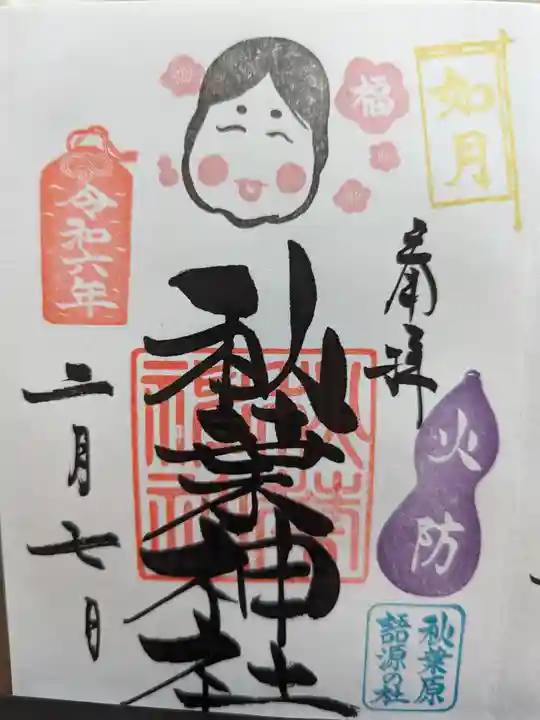 如月
奉拝
火防
秋葉原
語源の社
福
秋葉神社
令和六年
二月七日